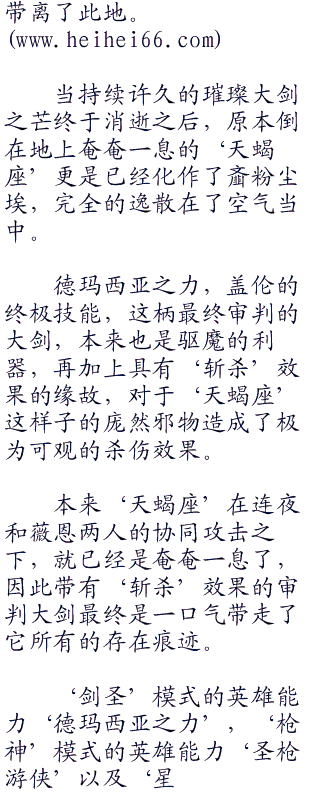 带离了此地。
(www.heihei66.com)
当持续许久的璀璨大剑
之芒终于消逝之后，原本倒
在地上奄奄一息的‘天蝎
座’更是已经化作了齑粉尘
埃，完全的逸散在了空气当
中。
德玛西亚之力，盖伦的
终极技能，这柄最终审判的
大剑，本来也是驱魔的利
器，再加上具有‘斩杀’效
果的缘故，对于‘天蝎座’
这样子的庞然邪物造成了极
为可观的杀伤效果。
本来‘天蝎座’在连夜
和薇恩两人的协同攻击之
下，就已经是奄奄一息了，
因此带有‘斩杀’效果的审
判大剑最终是一口气带走了
它所有的存在痕迹。
‘剑圣’模式的英雄能
力‘德玛西亚之力’，‘枪
神’模式的英雄能力‘圣枪
游侠’以及‘星